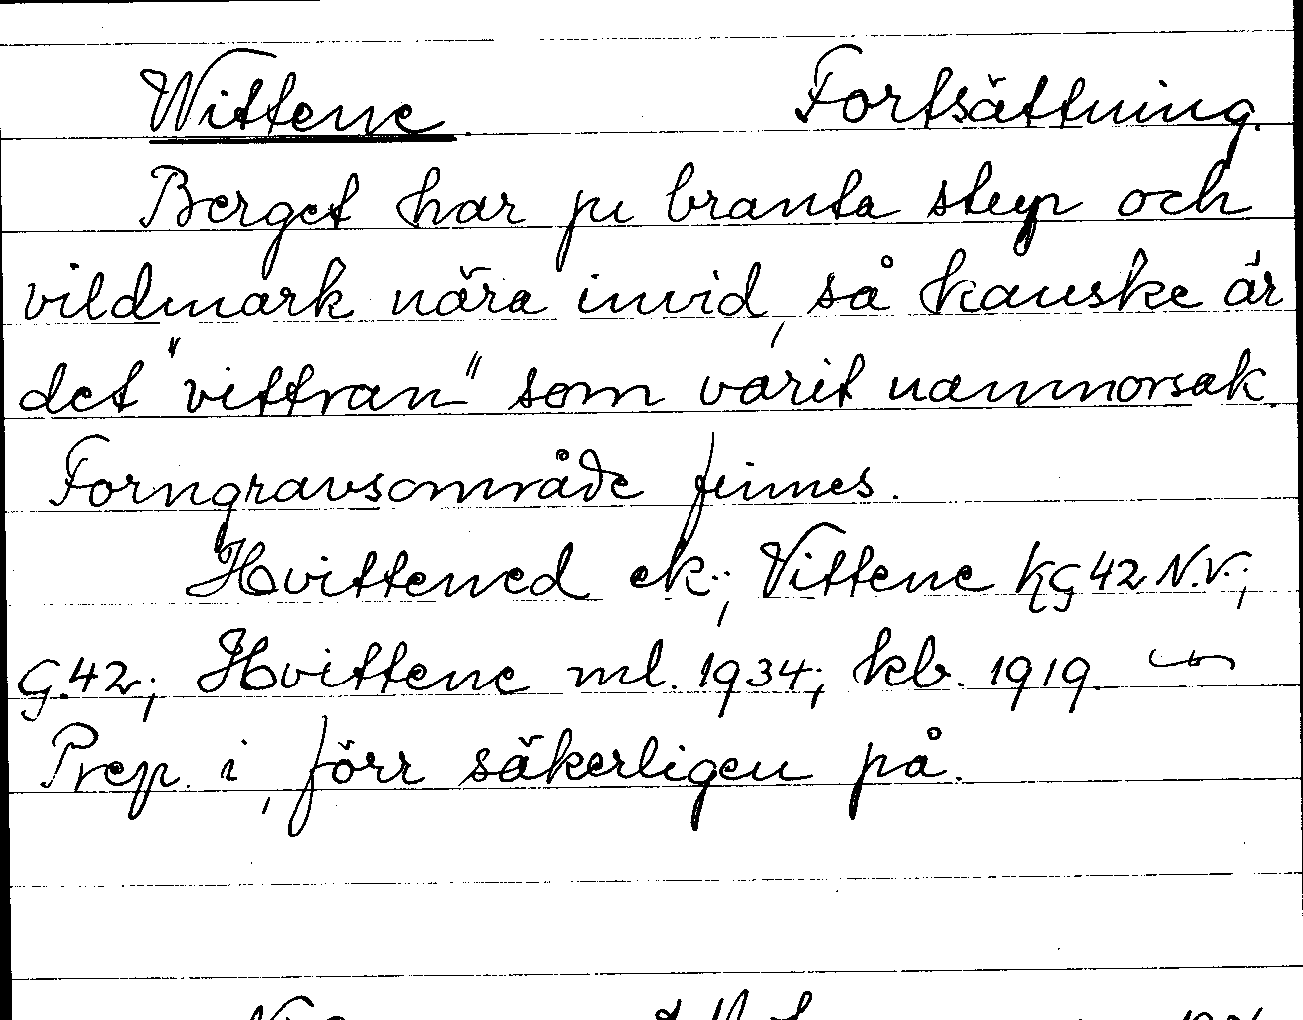 Wittene. Fortsättning.
Berget har ju branta stup och
vildmark nära invid, så kanske är
det "vittran" som varit namnorsak.
Forngravsområde finnes.
Hvittened ek.; Vittene KG42 N.V.;
G.42; Hvittene ml. 1934; kb. 1919.
Prep. i, förr säkerligen på.